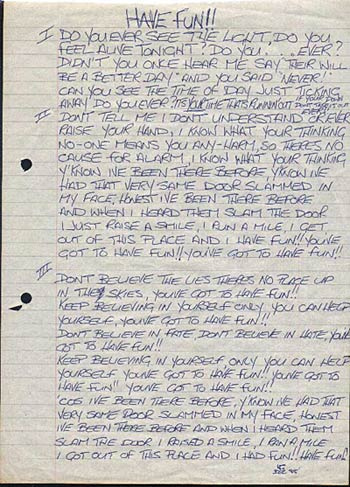 HAVE FUN!!
I DO YOU EVER SEE THE LIGHT, DO YOU
FEEL ALIVE TONIGHT? DO YOU... EVER?
DIDN'T YOU ONCE HEAR ME SAY THEIR WILL
BE A BETTER DAY AND YOU SAID "NEVER!"
CAN YOU SEE THE TIME OF DAY JUST TICKING
AWAY DO YOU EVER. ITS YOUR TIME THATS RUNNIN OUT IF YOUR DOWN
II DON'T TELL ME I DON'T UNDERSTAND OR EVER
RAISE YOUR HAND, I KNOW WHAT YOUR THINKING
NO-ONE MEANS YOU ANY-HARM, SO THERE'S NO
CAUSE FOR ALARM, I KNOW WHAT YOUR THINKING,
Y'KNOW IVE BEEN THERE BEFORE, Y'KNOW IVE
HAD THAT VERY SAME DOOR SLAMMED IN
MY FACE, HONEST IVE BEEN THERE BEFORE
AND WHEN I HEARD THEM SLAM THE DOOR
I JUST RAISE A SMILE, I RUN A MILE, I GET
OUT OF THIS PLACE AND I HAVE FUN!! YOU'VE
GOT TO HAVE FUN!! YOU'VE GOT TO HAVE FUN!!
III DON'T BELIEVE THE LIES THERE'S NO PLACE UP
IN THE SKIES, YOU'VE GOT TO HAVE FUN!!
KEEP BELIEVING IN YOURSELF ONLY YOU CAN HELP
YOURSELF, YOU'VE GOT TO HAVE FUN!!
DON'T BELIEVE IN FATE, DON'T BELIEVE IN HATE, YOU'VE
GOT TO HAVE FUN!!
KEEP BELIEVING IN YOURSELF, ONLY YOU CAN HELP
YOURSELF YOU'VE GOT TO HAVE FUN!! YOU'VE GOT TO
HAVE FUN!! YOU'VE GOT TO HAVE FUN!!
'COS IVE BEEN THERE BEFORE, Y'KNOW IVE HAD THAT
VERY SAME DOOR SLAMMED IN MY FACE, HONEST
IVE BEEN THERE BEFORE AND WHEN I HEARD THEM
SLAM THE DOOR I RAISED A SMILE, I RAN A MILE
I GOT OUT OF THIS PLACE AND I HAD FUN!! HAVE FUN!!